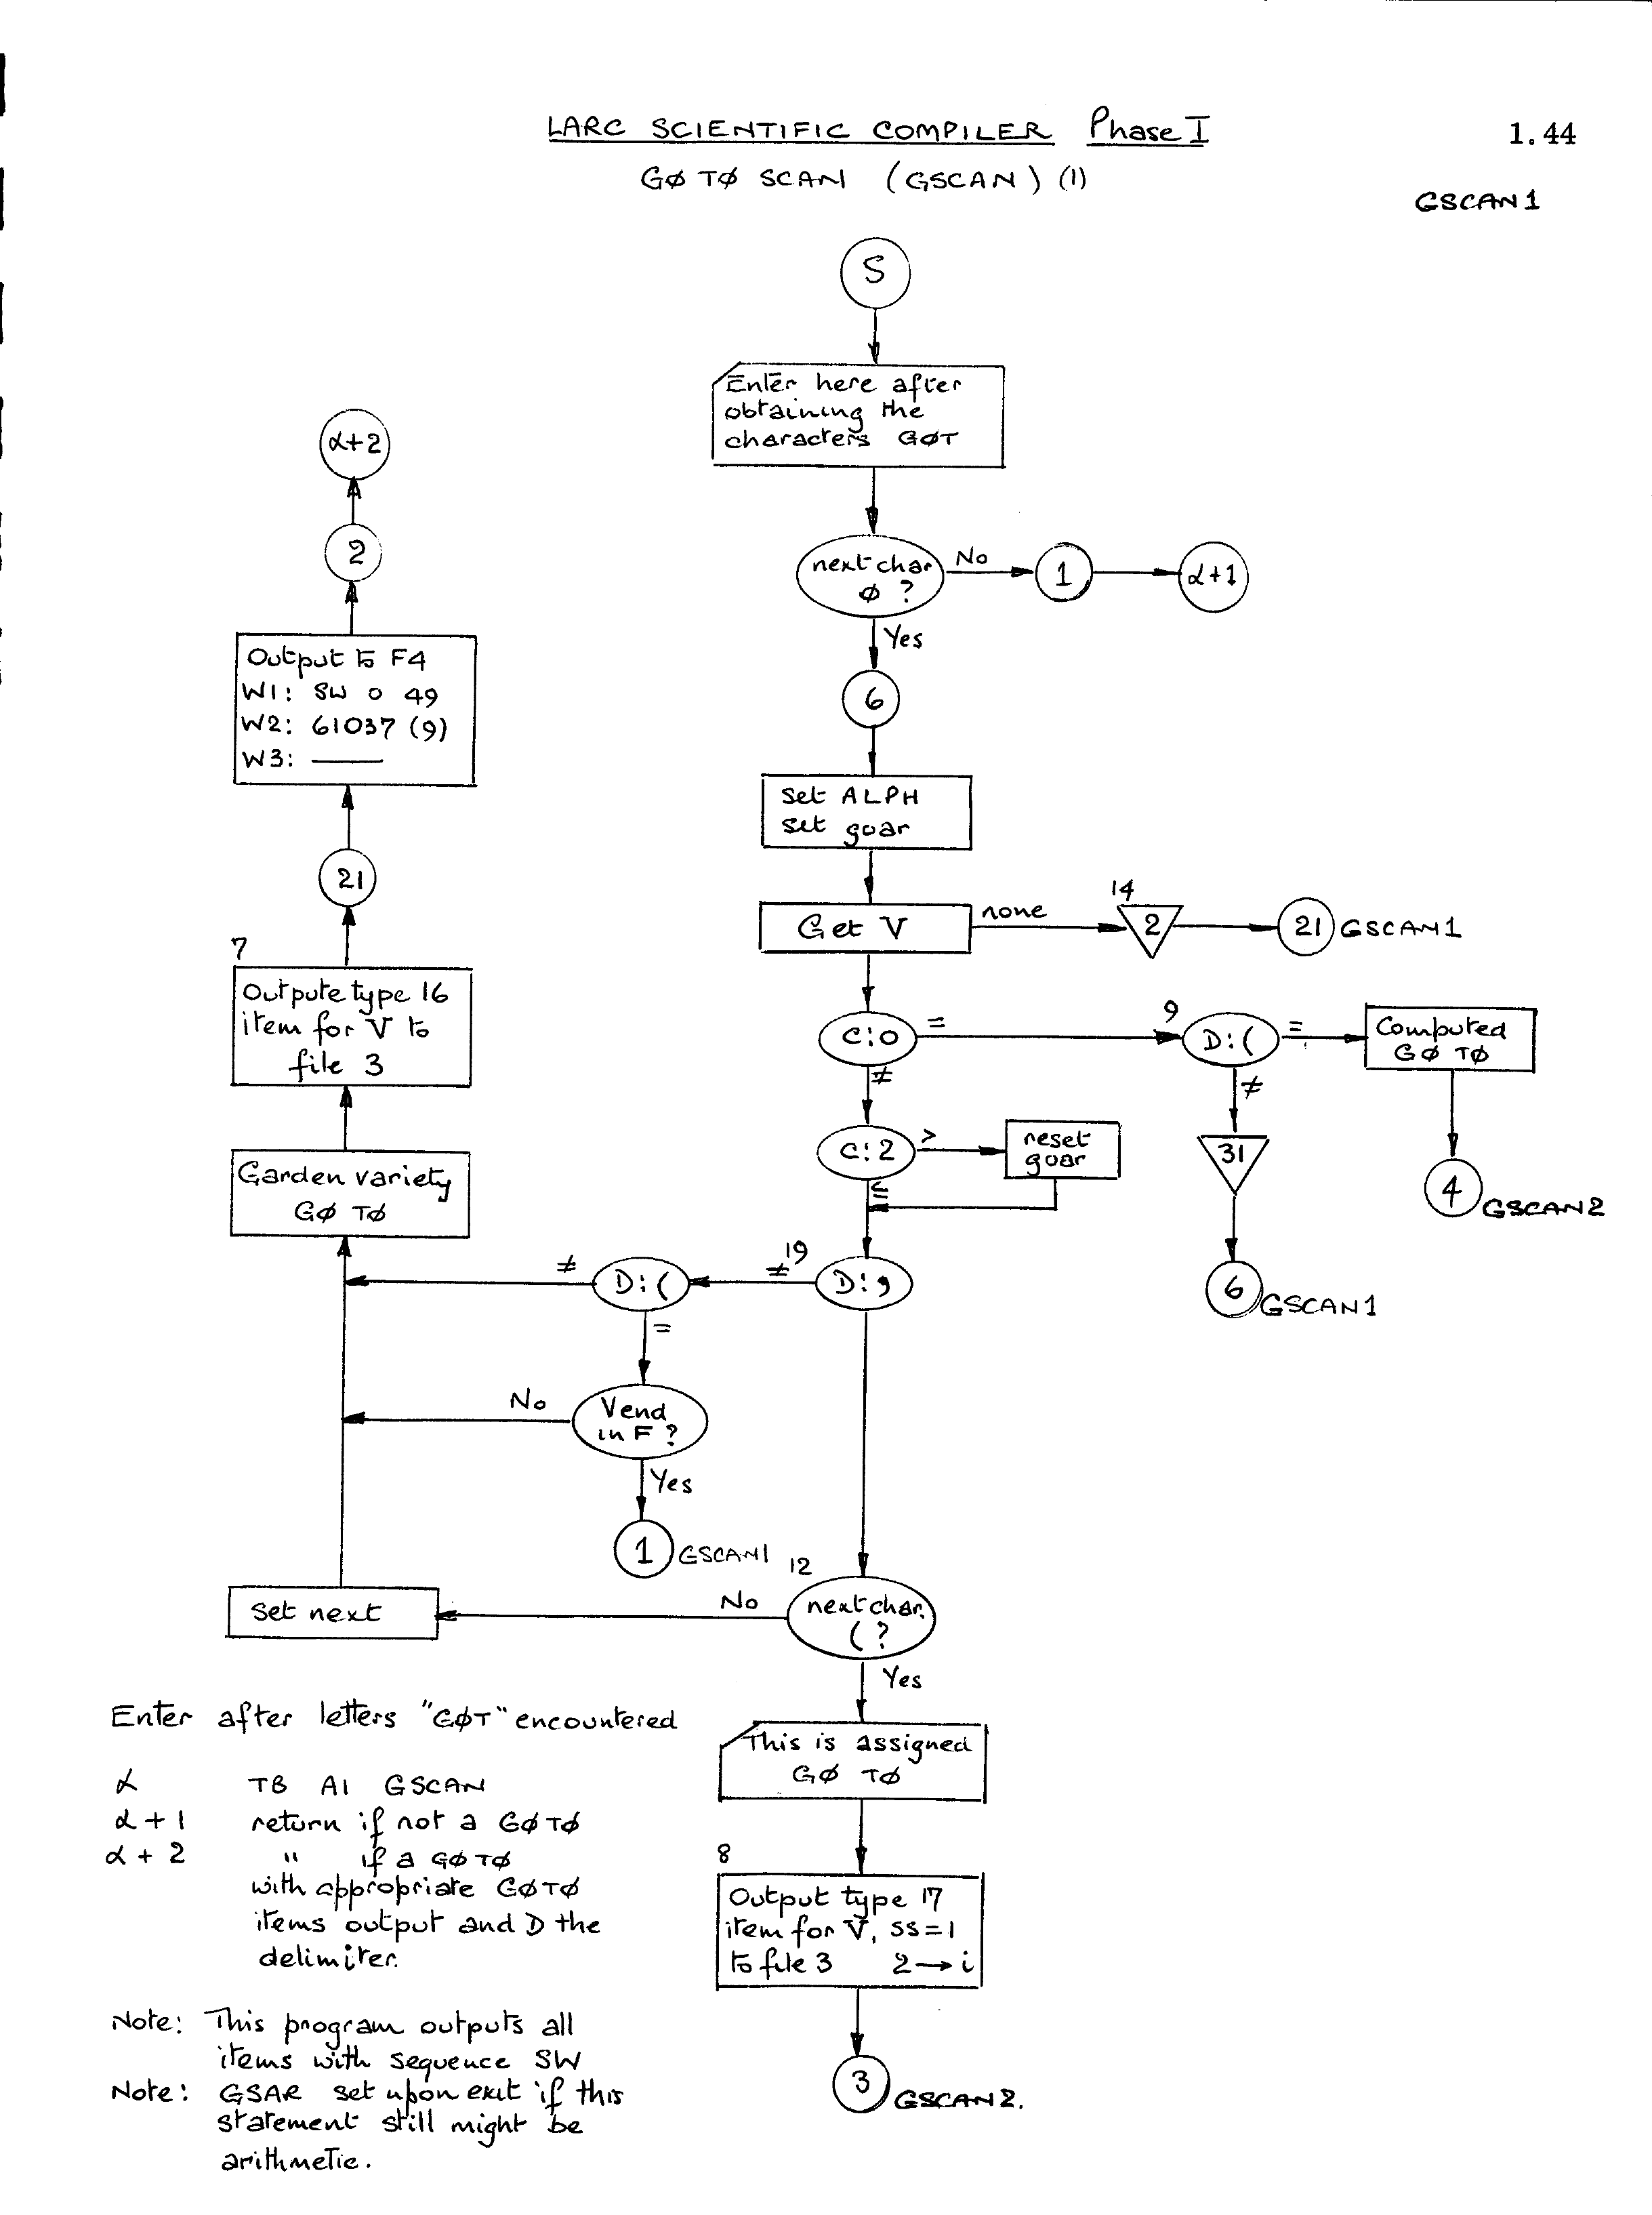 LARC SCIENTIFIC COMPILER Phase I
1.44
GØ TØ SCAN (GSCAN) (1)
GSCAN1
S
Enter here after
obtaining the
characters GØT
next char
Ø ?
No
1
α+1
Yes
6
Set ALPH
set goar
Get V
none
14
2
21
GSCAN1
C:0
=
9
D:(
=
Computed
GØ TØ
≠
≠
C:2
>
reset
goar
≤
31
4
GSCAN2
6
GSCAN1
D:,
19
≠
D:(
≠
=
V end
in F ?
No
Yes
1
GSCAN1
12
next char.
( ?
No
Set next
Yes
This is assigned
GØ TØ
8
Output type 17
item for V, SS=1
to file 3 2→i
3
GSCAN2.
α+2
2
Output to F4
W1: SW 0 49
W2: 61037 (9)
W3: ——
21
7
Outpute type 16
item for V to
file 3
Garden variety
GØ TØ
Enter after letters "GØT" encountered
α TB A1 GSCAN
α + 1 return if not a GØTØ
α + 2 " if a GØTØ
with appropriate GØTØ
items output and D the
delimiter.
Note: This program outputs all
items with sequence SW
Note: GSAR set upon exit if this
statement still might be
arithmetic.